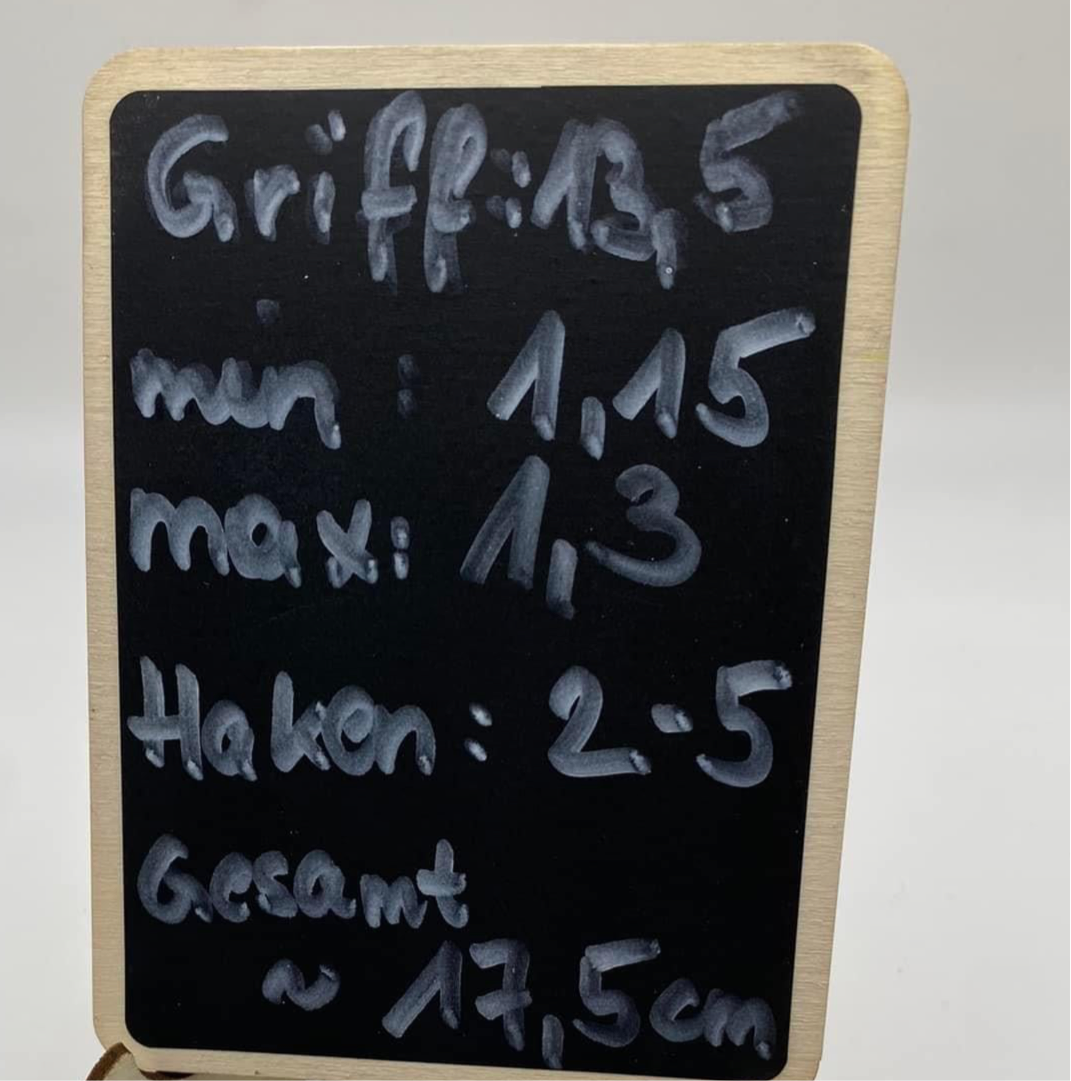 Griff: 13,5
min : 1,15
max: 1,3
Haken: 2-5
Gesamt
~ 17,5cm